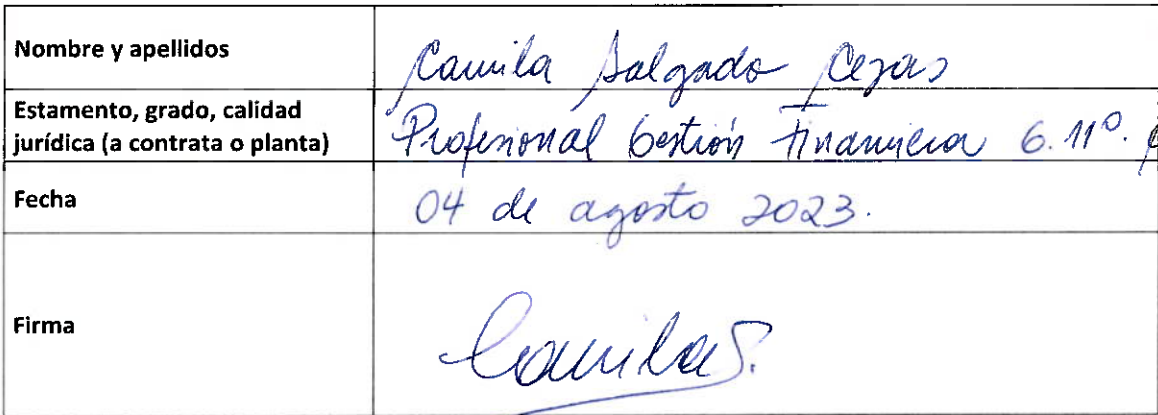 Nombre y apellidos
Camila Salgado Cezas
Estamento, grado, calidad
jurídica (a contrata o planta)
Profesional Gestión Financiera G. 11º.
Fecha
04 de agosto 2023.
Firma
Camila S.